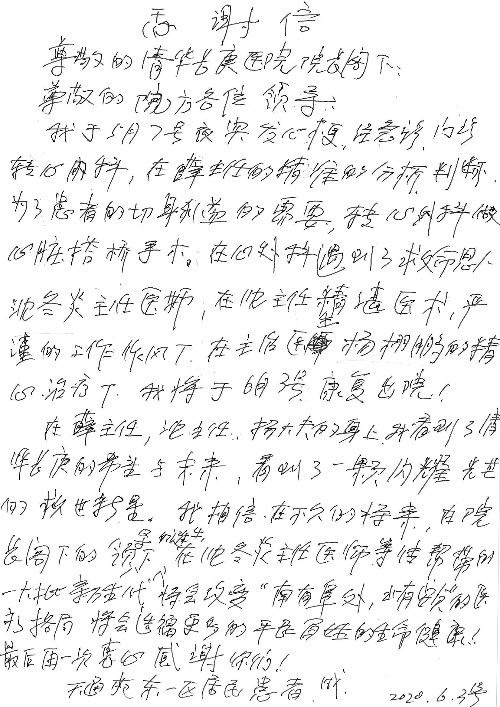 感谢信
尊敬的清华长庚医院院长阁下:
尊敬的院方各位领导:
我于5月7号夜突发心梗,经急诊,内转
转心内科,在薛主任的精准的分析判断.
为了患者的切身利益的需要,转心外科做
心脏搭桥手术。在心外科遇到了救命恩人
沈冬炎主任医师,在沈主任精湛医术,严
谨的工作作风下.在主治医生杨棚的精
心治疗下.我将于6月3号康复出院!
在薛主任,沈主任.杨大夫的身上,我看到了清
华长庚的希望与未来,看到了一颗闪耀光芒
的救世新星。我相信.在不久的将来,在院
长阁下的领导下在沈冬炎主任医师等传帮带的
一大批新生代 将会改变"南有阜外,北有安贞"的医
疗格局 将会造福更多的平民百姓的生命健康!
最后再一次衷心感谢你们!
天通苑东一区居民患者
2020.6.3号